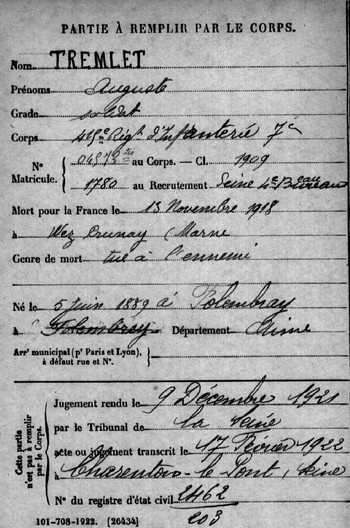 PARTIE À REMPLIR PAR LE CORPS.
Nom TREMLET
Prénoms Auguste
Grade soldat
Corps Régt d'Infanterie
Nº Matricule.
au Corps. — Cl. 1909
1780 au Recrutement Seine 4e Bureau
Mort pour la France le 13 Novembre 1918
à Wez Prunay (Marne
Genre de mort tué à l'ennemi
Né le 5 juin 1889 à Folembray
à Folembray Département Aisne
Arrt municipal (pr Paris et Lyon), à défaut rue et Nº.
Cette partie n'est pas à remplir par le Corps.
Jugement rendu le 9 Décembre 1921
par le Tribunal de la Seine
acte ou jugement transcrit le 17 Février 1922
à Charenton-le-Pont, Seine
Nº du registre d'état civil 2462
203
101-708-1922. [26434]